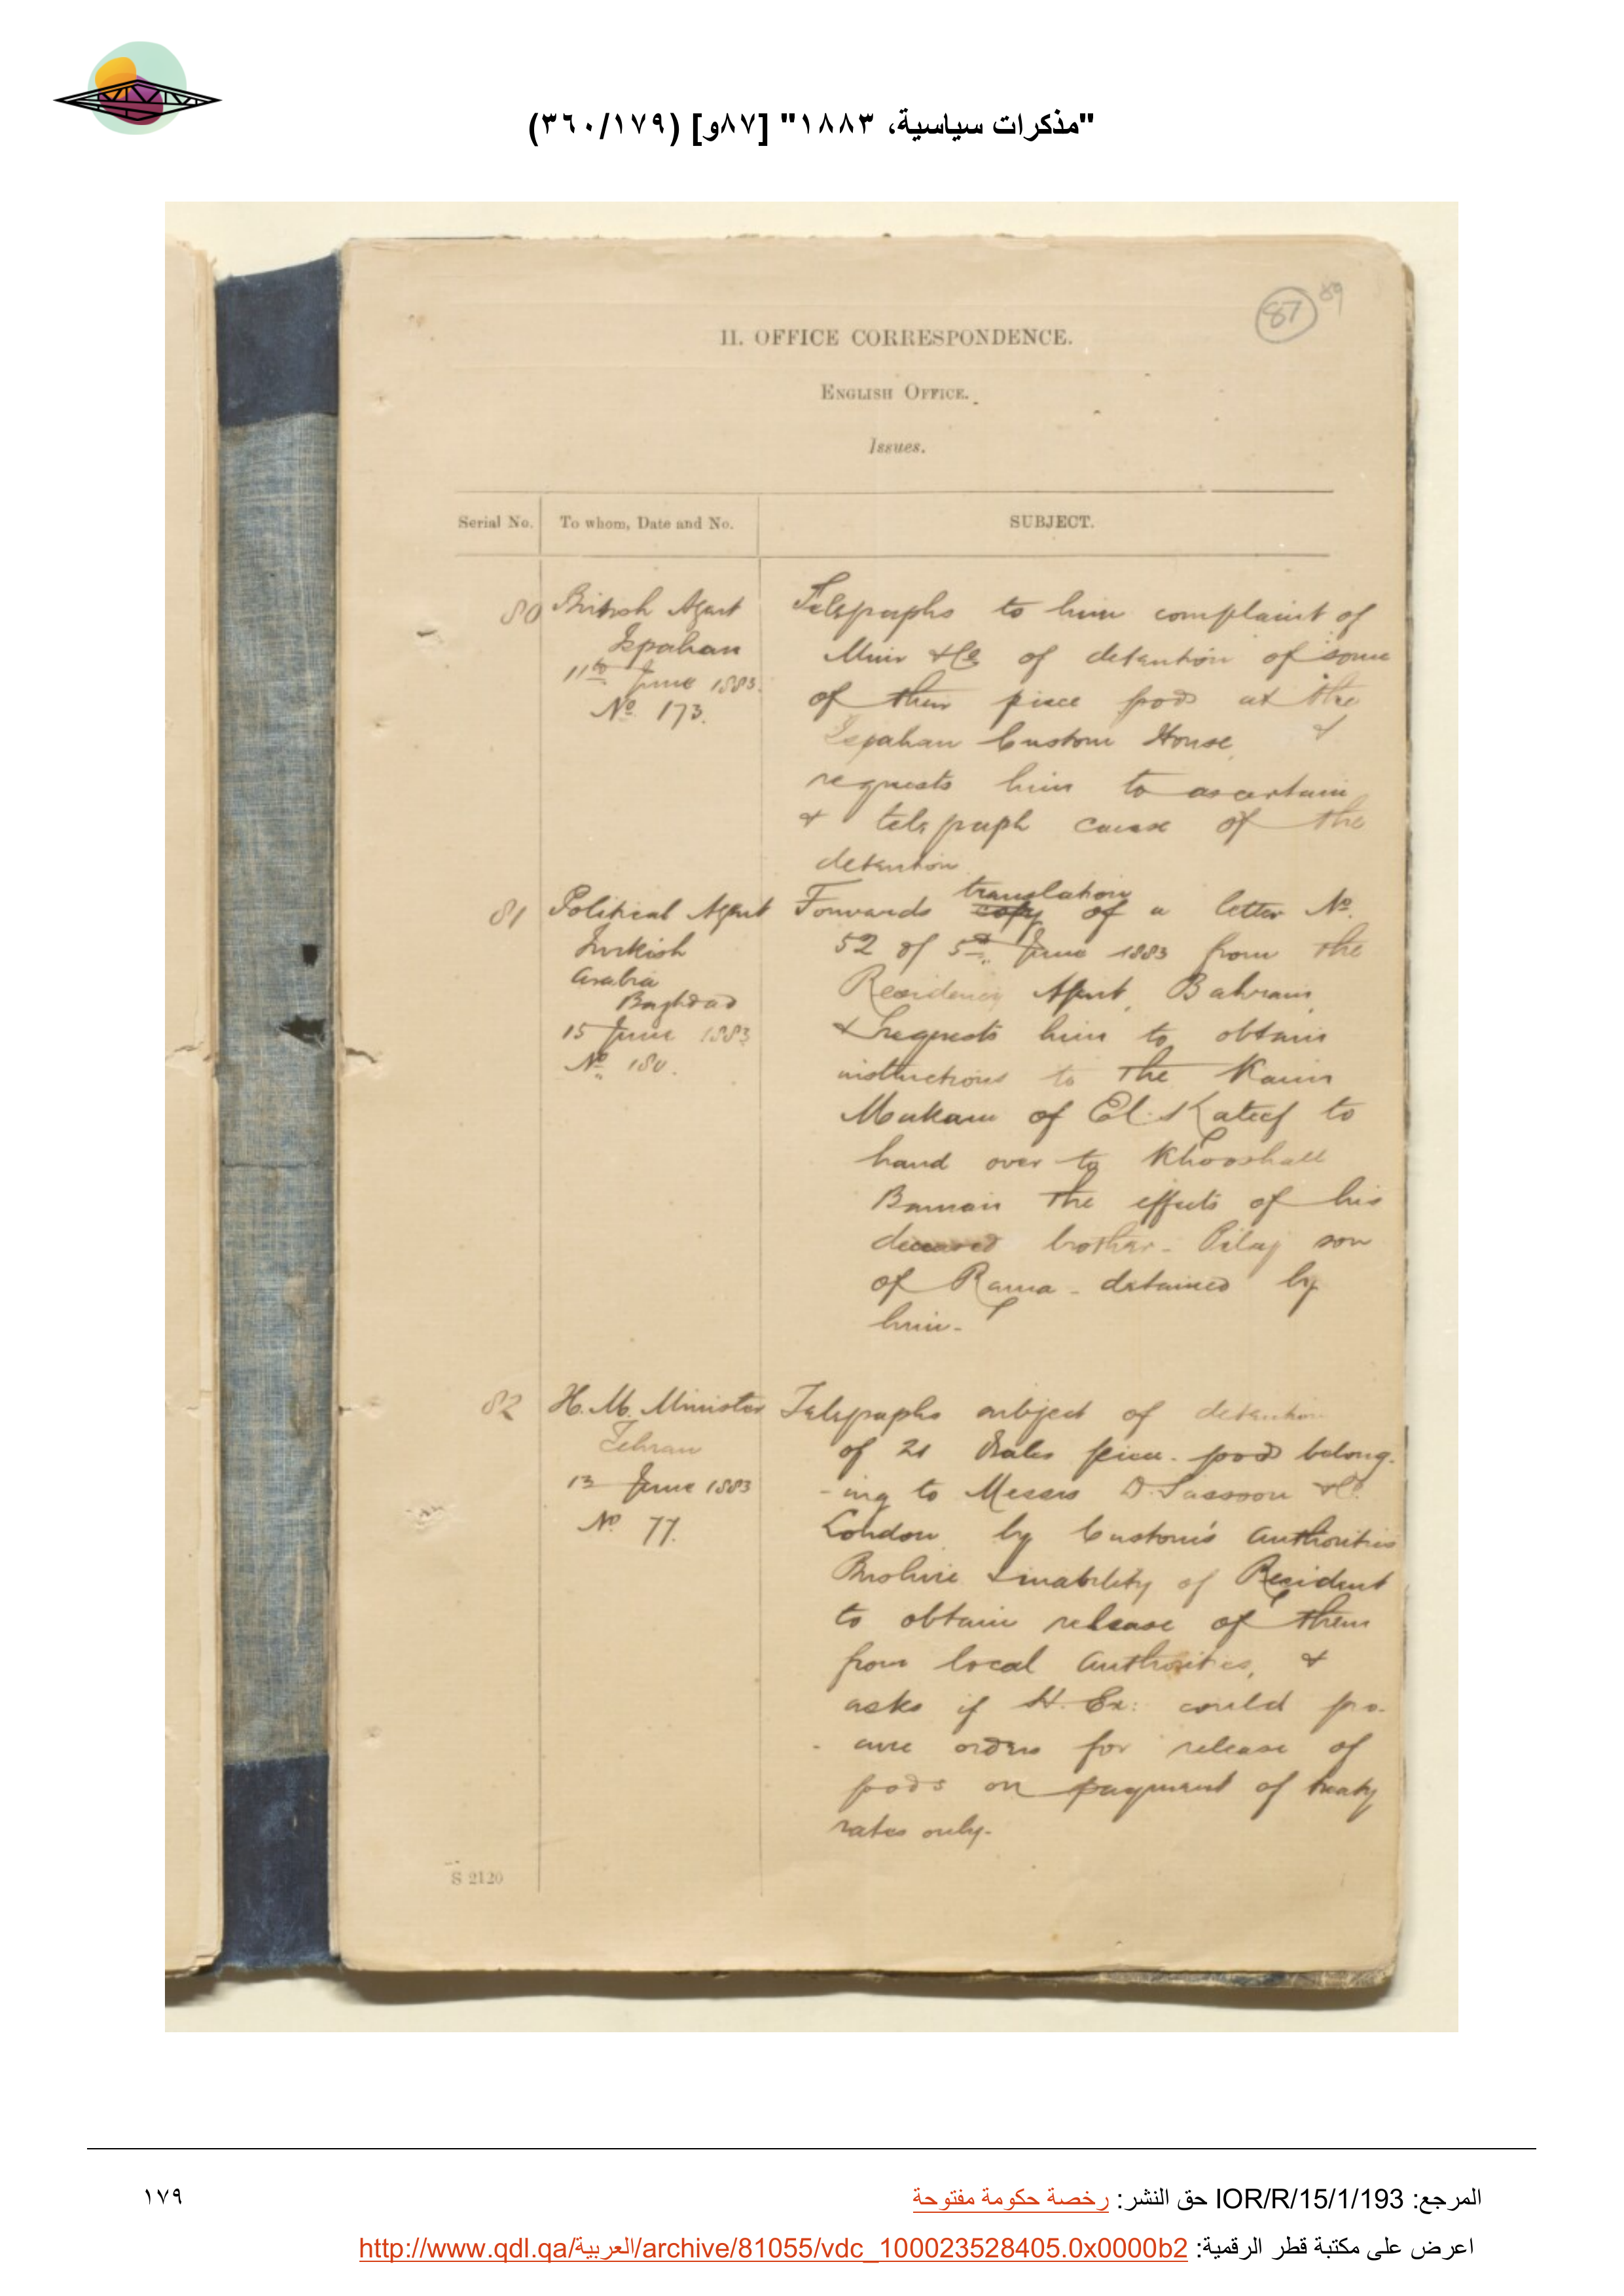 "مذكرات سياسية، ١٨٨٣" [٨٧و] (٣٦٠/١٧٩)
87
89
II. OFFICE CORRESPONDENCE.
ENGLISH OFFICE.
Issues.
Serial No. To whom, Date and No. SUBJECT.
80 British Agent
Ispahan
11th June 1883.
No. 173.
Telegraphs to him complaint of
Muir & Co of detention of some
of their piece goods at the
Ispahan Custom House, &
requests him to ascertain
& telegraph cause of the
detention
81 Political Agent
Turkish
Arabia
Baghdad
15 June 1883
No. 180.
Forwards copy translation of a letter No.
52 of 5th June 1883 from the
Residency Agent, Bahrain,
& requests him to obtain
instructions to the Kaim
Mukam of El Kateef to
hand over to Khooshall
Bannian the effects of his
deceased brother - Pilaj son
of Rama - detained by
him -
82 H. M. Minister
Tehran
13 June 1883
No. 77.
Telegraphs subject of detention
of 21 bales piece-goods belong-
-ing to Messrs D. Sassoon & Co.
London, by Custom's authorities
Bushire & inability of Resident
to obtain release of them
from local authorities, &
asks if H. Ex: could pro-
- cure orders for release of
goods on payment of treaty
rates only.
S 2120
المرجع: IOR/R/15/1/193 حق النشر: رخصة حكومة مفتوحة
١٧٩
اعرض على مكتبة قطر الرقمية: http://www.qdl.qa/العربية/archive/81055/vdc_100023528405.0x0000b2